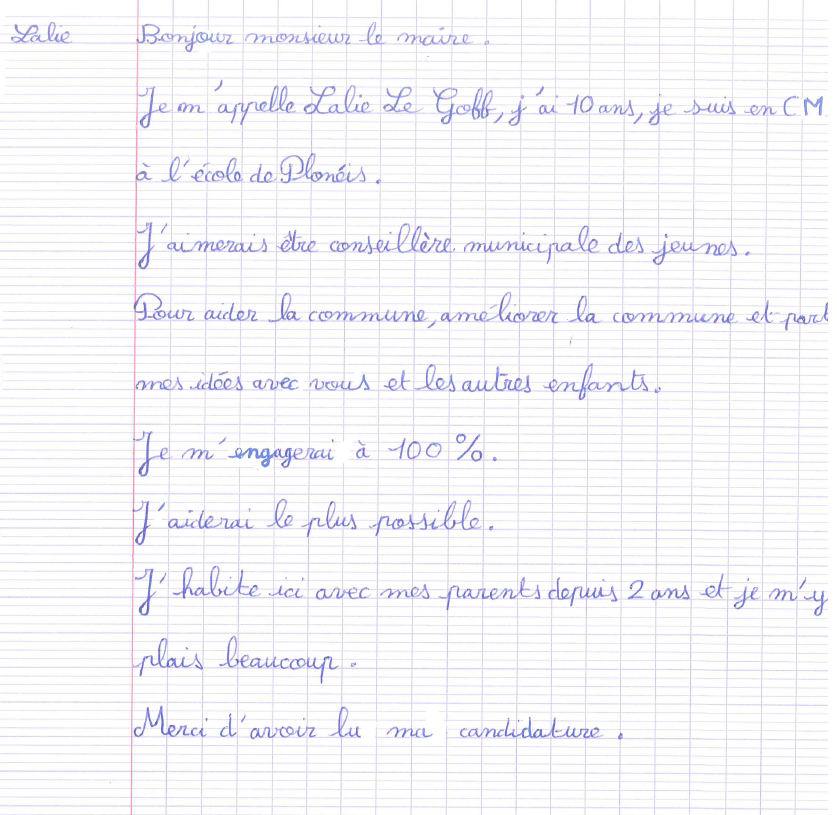 Lalie Bonjour monsieur le maire.
Je m'appelle Lalie Le Goff, j'ai 10 ans, je suis en CM
à l'école de Plonéis.
J'aimerais être conseillère municipale des jeunes.
Pour aider la commune, améliorer la commune et part
mes idées avec vous et les autres enfants.
Je m'engagerai à 100 %.
J'aiderai le plus possible.
J'habite ici avec mes parents depuis 2 ans et je m'y
plais beaucoup.
Merci d'avoir lu ma candidature.